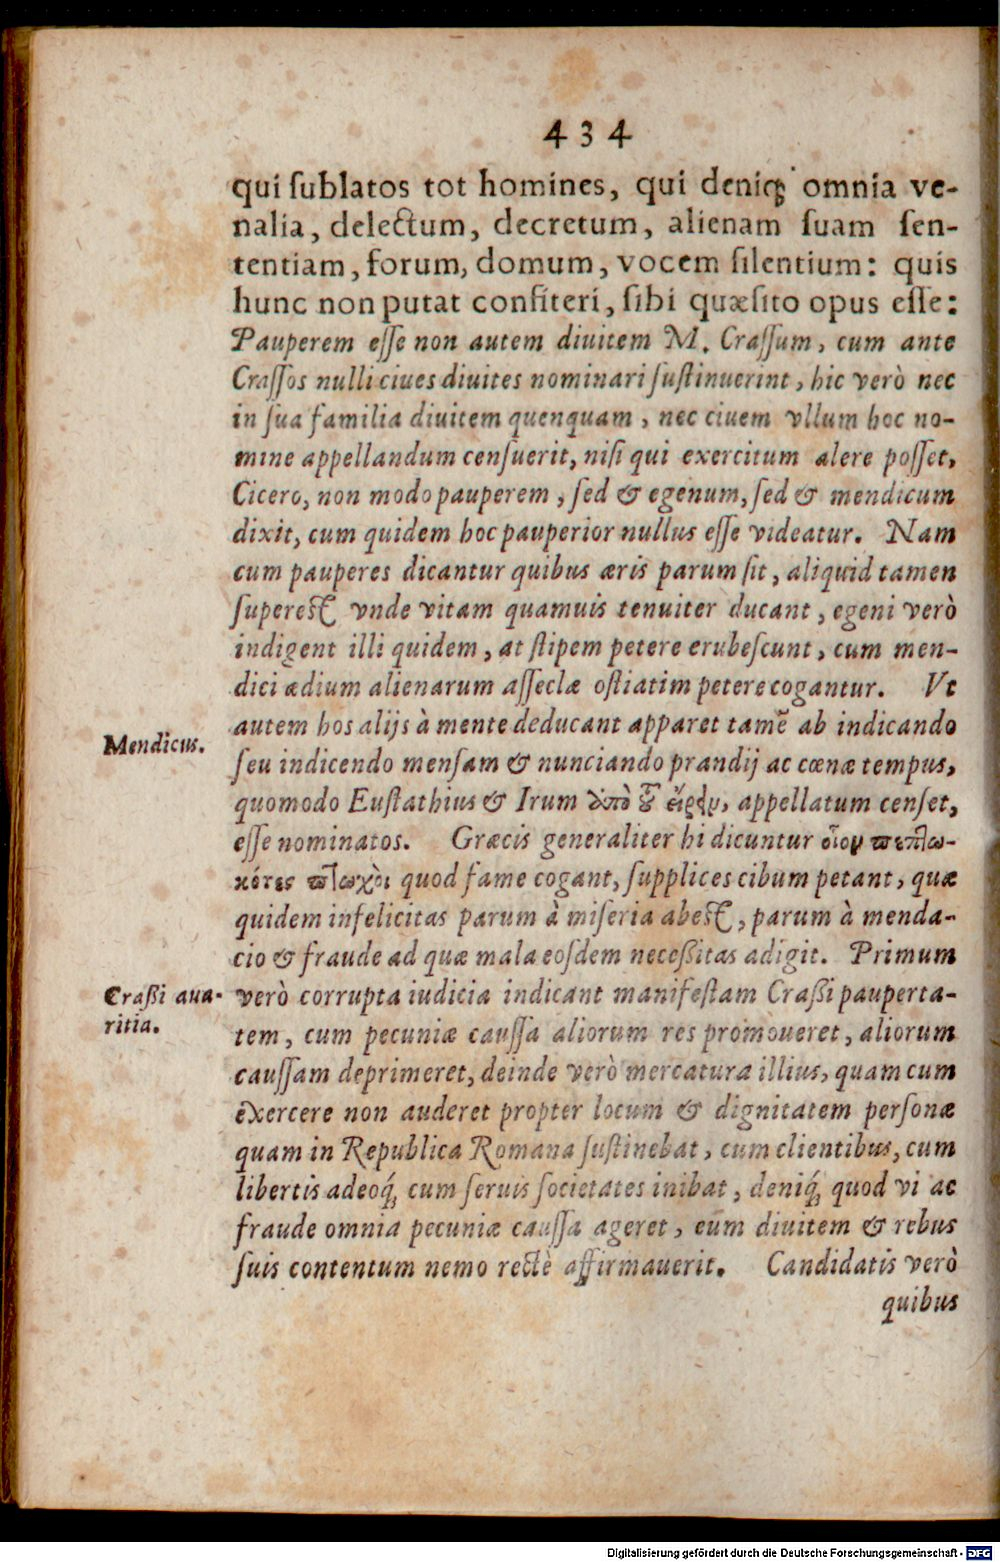 434
qui ſublatos tot homines, qui deniq́; omnia ve-
nalia, delectum, decretum, alienam ſuam ſen-
tentiam, forum, domum, vocem ſilentium: quis
hunc non putat confiteri, ſibi quæſito opus eſſe:
Pauperem eſſe non autem diuitem M. Craſſum, cum ante
Craſſos nulli ciues diuites nominari ſuſtinuerint, hic verò nec
in ſua familia diuitem quenquam, nec ciuem vllum hoc no-
mine appellandum cenſuerit, niſi qui exercitum alere poſſet,
Cicero, non modo pauperem, ſed & egenum, ſed & mendicum
dixit, cum quidem hoc pauperior nullus eſſe videatur. Nam
cum pauperes dicantur quibus æris parum ſit, aliquid tamen
ſupereſt vnde vitam quamuis tenuiter ducant, egeni verò
indigent illi quidem, at ſtipem petere erubeſcunt, cum men-
dici ædium alienarum aſſeclæ oſtiatim petere cogantur. Vt
autem hos alijs à mente deducant apparet tamẽ ab indicando
Mendicus.
ſeu indicendo menſam & nunciando prandij ac cœnæ tempus,
quomodo Euſtathius & Irum ἀπὸ τοῦ εἴρειν, appellatum cenſet,
eſſe nominatos. Græcis generaliter hi dicuntur οἷον πεπτω-
κότες πτωχοὶ quod fame cogant, ſupplices cibum petant, quæ
quidem infelicitas parum à miſeria abeſt, parum à menda-
cio & fraude ad quæ mala eoſdem neceßitas adigit. Primum
Craßi aua-
ritia.
verò corrupta iudicia indicant manifeſtam Craßi pauperta-
tem, cum pecuniæ cauſſa aliorum res promoueret, aliorum
cauſſam deprimeret, deinde verò mercatura illius, quam cum
exercere non auderet propter locum & dignitatem perſonæ
quam in Republica Romana ſuſtinebat, cum clientibus, cum
libertis adeoq́; cum ſeruis ſocietates inibat, deniq́; quod vi ac
fraude omnia pecuniæ cauſſa ageret, eum diuitem & rebus
ſuis contentum nemo rectè affirmauerit. Candidatis verò
quibus
Digitalisierung gefördert durch die Deutsche Forschungsgemeinschaft - DFG